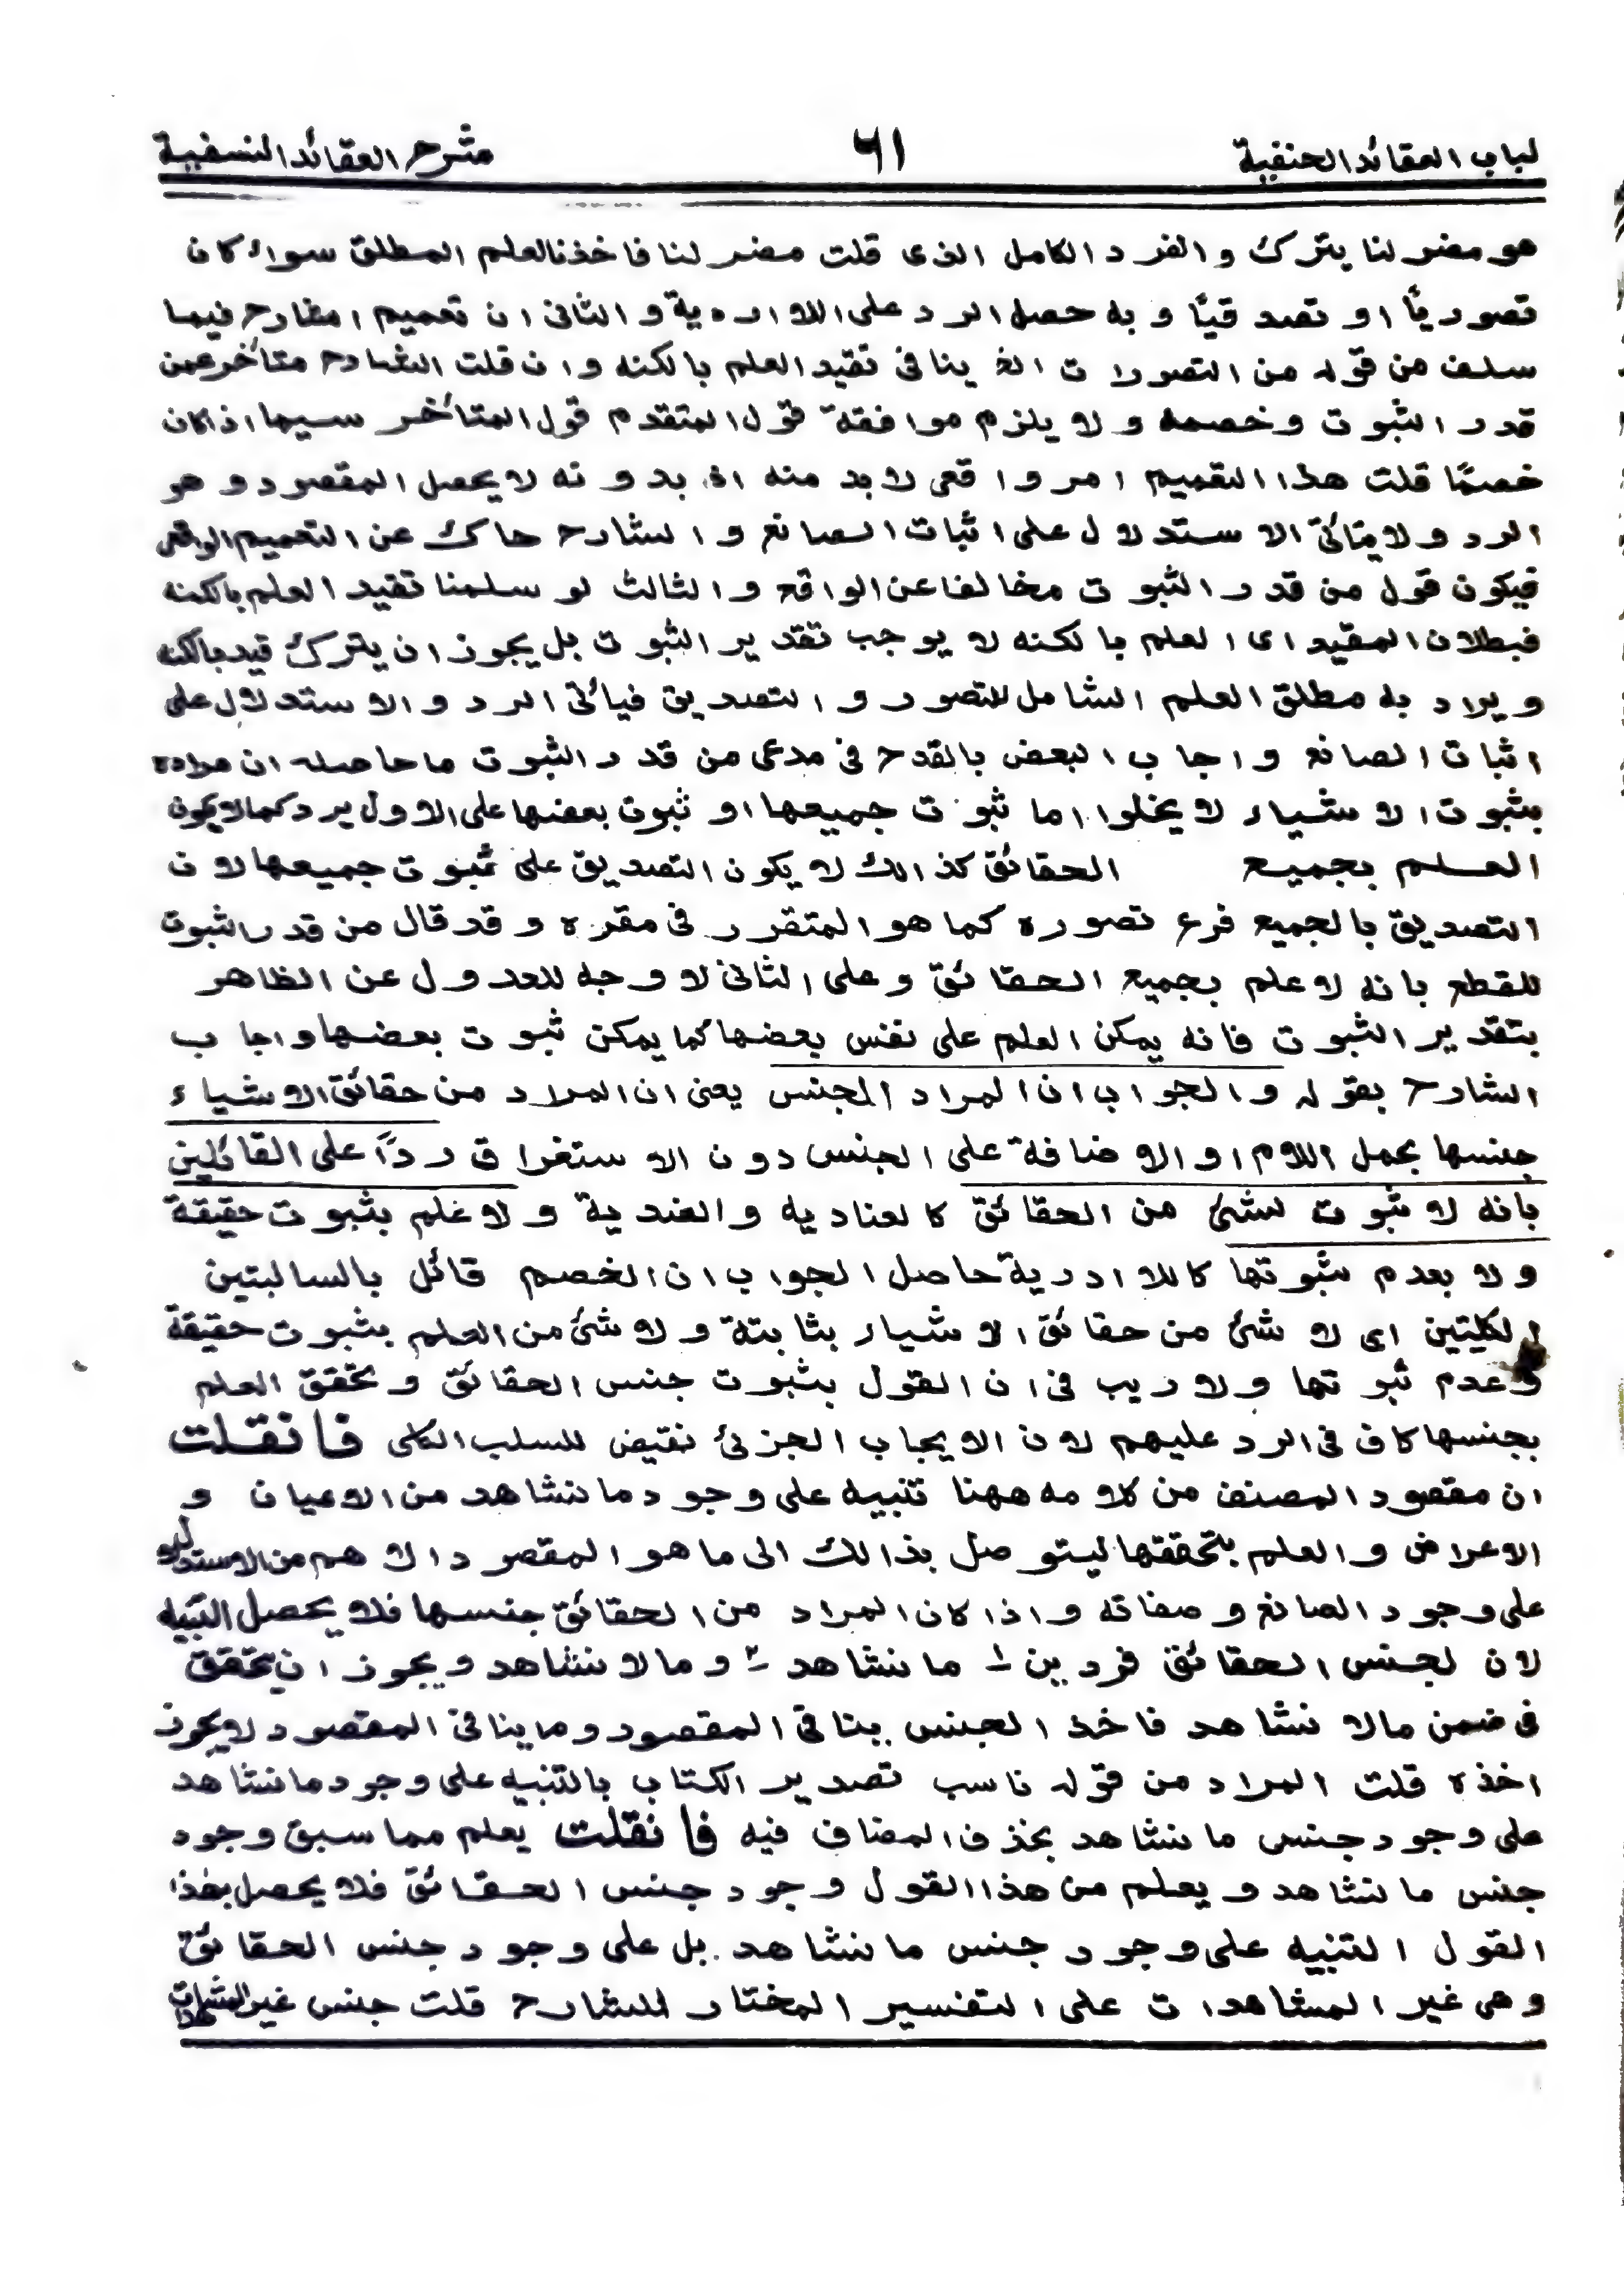 لباب العقائد الحنفية ٦١ شرح العقائد النسفية
هو مضر لنا يترك والفرد الكامل الذى قلت مضر لنا فاخذنا العلم المطلق سواء كان
تصوريًا او تصديقيًا وبه حصل الرد على اللاادرية والثانى ان تعميم الشارح فيما
سلف من قوله من التصورات الخ ينافى تقيد العلم بالكنه وان قلت الشارح متأخر عمن
قدر الثبوت وخصمه ولا يلزم موافقة قول المتقدم قول المتأخر سيما اذ كان
خصمًا قلت هذا التعميم امر واقعى لا بد منه اذ بدونه لا يحصل المقصود وهو
الرد ولا يتأتى الاستدلال على اثبات الصانع والشارح حاك عن التعميم الواقعى
فيكون قول من قدر الثبوت مخالفا عن الواقع والثالث لو سلمنا تقيد العلم بالكنه
فبطلان المقيد اى العلم بالكنه لا يوجب تقدير الثبوت بل يجوز ان يترك قيد بالكنه
ويراد به مطلق العلم الشامل للتصور والتصديق فيأتى الرد والاستدلال على
اثبات الصانع واجاب البعض بالقدح فى مدعى من قدر الثبوت ما حاصله ان مراده
بثبوت الاشياء لا يخلوا اما ثبوت جميعها او ثبوت بعضها على الاول يرد كما لا يكون
العلم بجميع الحقائق كذالك لا يكون التصديق على ثبوت جميعها لان
التصديق بالجميع فرع تصوره كما هو المتقرر فى مقره وقد قال من قدر الثبوت
للقطع بانه لا علم بجميع الحقائق وعلى الثانى لا وجه للعدول عن الظاهر
بتقدير الثبوت فانه يمكن العلم على نفس بعضها كما يمكن ثبوت بعضها واجاب
الشارح بقوله والجواب ان المراد الجنس يعنى ان المراد من حقائق الاشياء
جنسها بحمل اللام او الاضافة على الجنس دون الاستغراق ردًا على القائلين
بانه لا ثبوت لشئ من الحقائق كالعناديه والعندية ولا علم بثبوت حقيقة
ولا بعدم ثبوتها كاللاادرية حاصل الجواب ان الخصم قائل بالسالبتين
الكليتين اى لا شئ من حقائق الاشياء بثابتة ولا شئ من العلم بثبوت حقيقة
وعدم ثبوتها ولا ريب فى ان القول بثبوت جنس الحقائق وتحقق العلم
بجنسها كاف فى الرد عليهم لان الايجاب الجزئ نقيض للسلب الكلى فان قلت
ان مقصود المصنف من كلامه ههنا تنبيه على وجود ما نشاهد من الاعيان و
الاعراض والعلم بتحققها ليتوصل بذالك الى ما هو المقصود الاهم من الاستدلال
على وجود الصانع وصفاته واذا كان المراد من الحقائق جنسها فلا يحصل التنبيه
لان لجنس الحقائق فردين ١ ما نشاهد ٢ وما لا نشاهد ويجوز ان يتحقق
فى ضمن مالا نشاهد فاخذ الجنس ينافى المقصود وما ينافى المقصود لا يجوز
اخذه قلت المراد من قوله ناسب تصدير الكتاب بالتنبيه على وجود ما نشاهد
على وجود جنس ما نشاهد بحذف المضاف فيه فان قلت يعلم مما سبق وجود
جنس ما نشاهد ويعلم من هذا القول وجود جنس الحقائق فلا يحصل بهذا
القول التنبيه على وجود جنس ما نشاهد بل على وجود جنس الحقائق
وهى غير المشاهدات على التفسير المختار للشارح قلت جنس غير المشاهدات